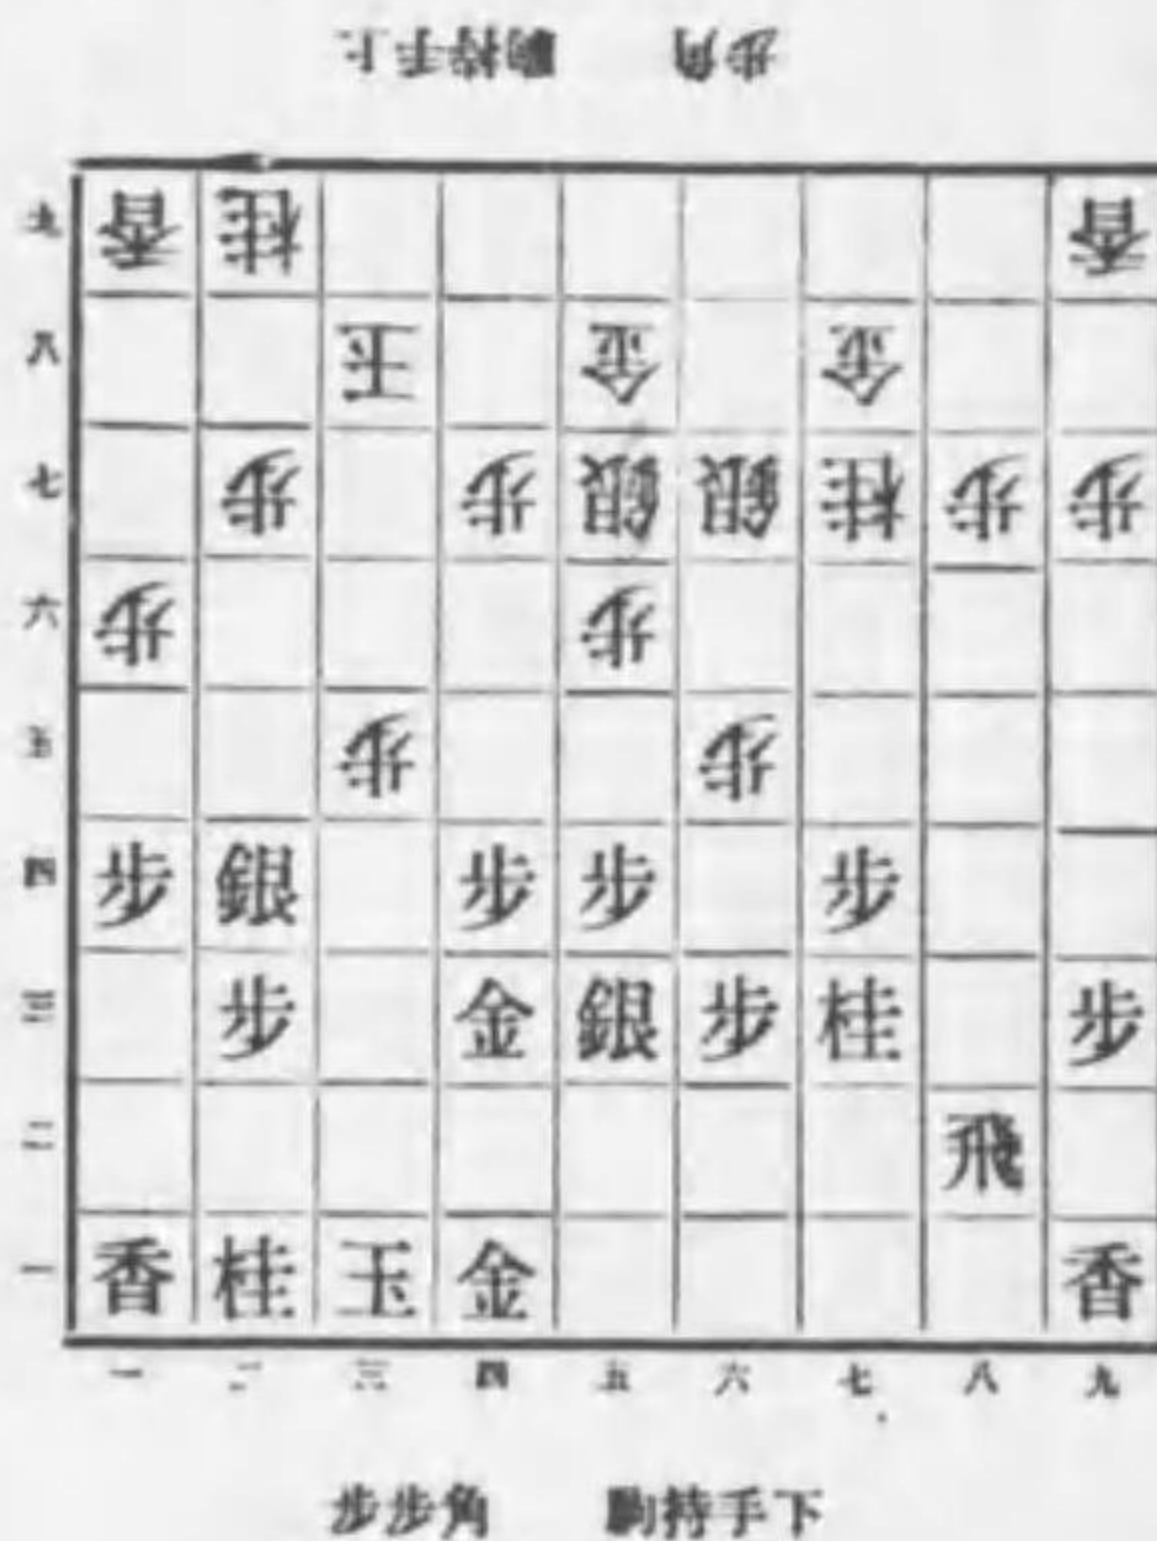 上手持駒 角步
九 香 桂 香
八 王 金 金
七 步 步 銀 銀 桂 步 步
六 步 步
五 步 步
四 步 銀 步 步 步
三 步 金 銀 步 桂 步
二 飛
一 香 桂 玉 金 香
一 二 三 四 五 六 七 八 九
步步角 駒持手下